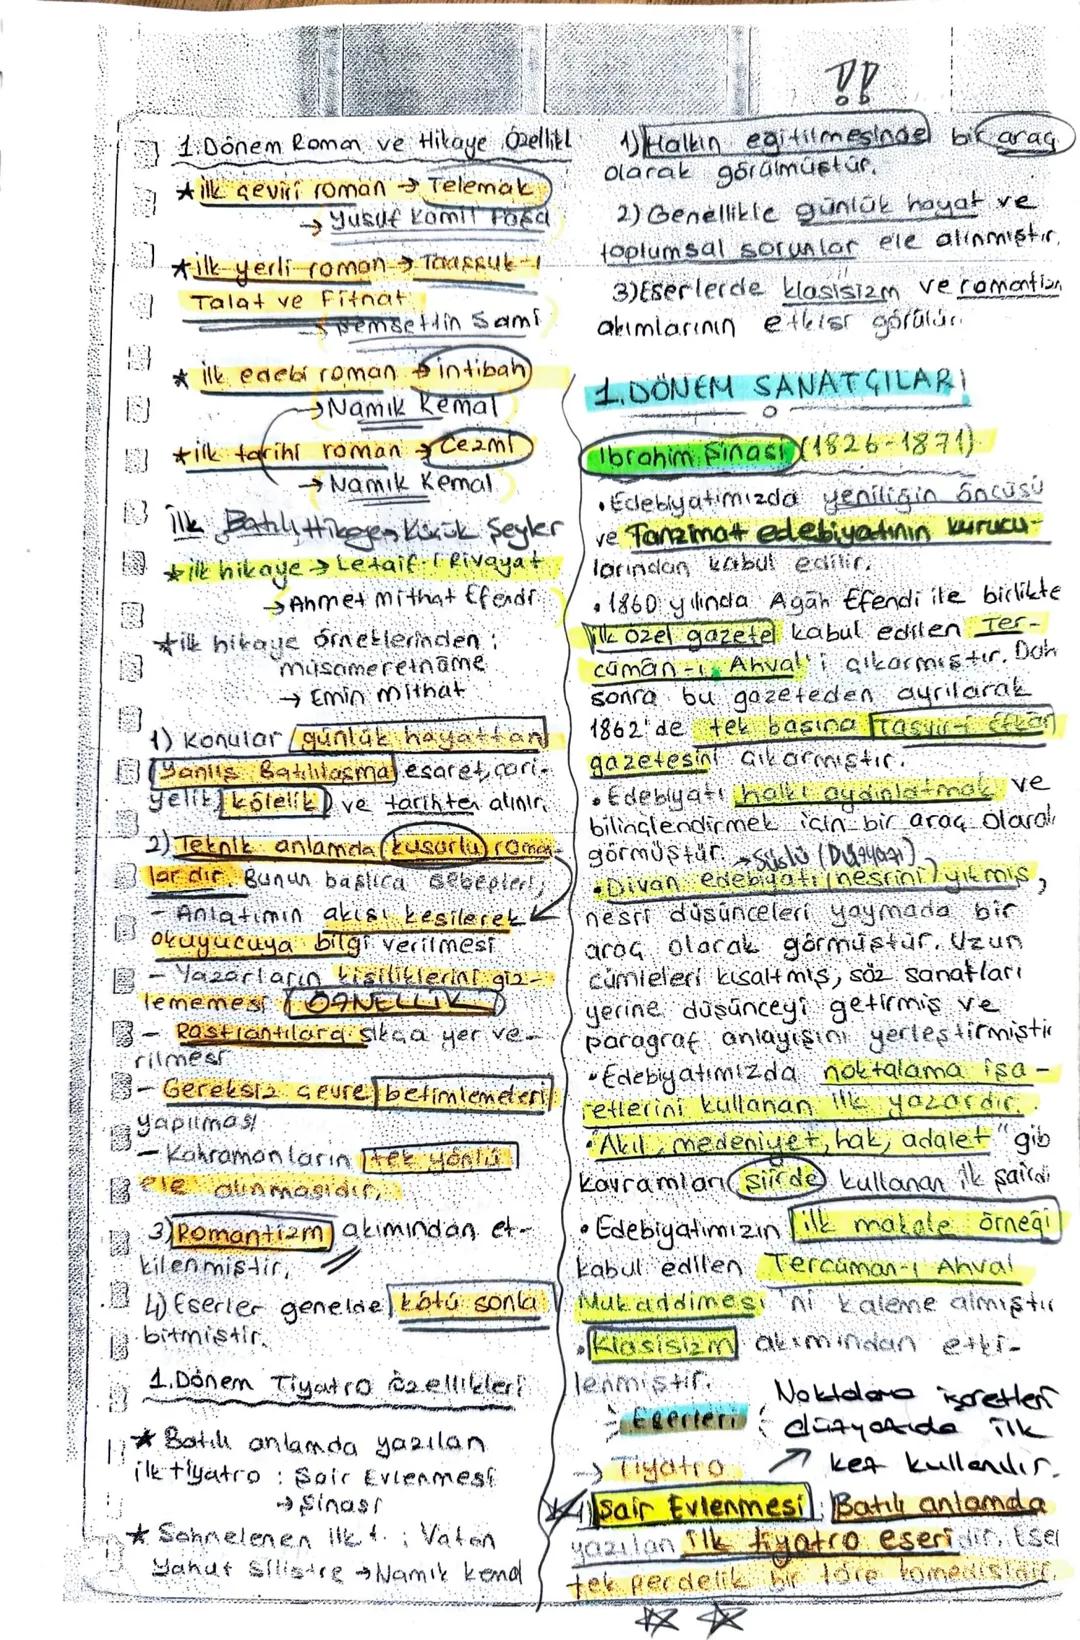 1.Dönem Roman ve Hikaye Özellikl
★ilk çeviri roman → Telemak
→ Yusuf Kamil Paşa
★ilk yerli roman → Taaşşuk-ı
Talat ve Fitnat
Şemsettin Sami
★ ilk edebi roman → intibah
→Namık Kemal
★ilk tarihi roman → Cezmi
→ Namık Kemal
İlk Batılı Hikaye Küçük Şeyler
★ilk hikaye → Letaif-i Rivayat
→Ahmet Mithat Efendi
★ilk hikaye örneklerinden :
müsameretname
→ Emin Mithat
1) Konular günlük hayattan
Yanlış Batılılaşma esaret, cari-
yelik, kölelik ve tarihten alınır.
2) Teknik anlamda kusurlu roman-
lardır. Bunun başlıca sebepleri;
- Anlatımın akışı kesilerek
okuyucuya bilgi verilmesi
- Yazarların kişiliklerini giz-
lememesi ÖZNELLİK
- Rastlantılara sıkça yer ve-
rilmesi
- Gereksiz çevre betimlemeleri
yapılması
- Kahramanların tek yönlü
ele alınmasıdır.
3) Romantizm akımından et-
kilenmiştir.
4) Eserler genelde kötü sonla
bitmiştir.
1.Dönem Tiyatro özellikleri
★ Batılı anlamda yazılan
ilk tiyatro : Şair Evlenmesi
→ Şinasi
★ Sahnelenen ilk t. : Vatan
Yahut Silistre →Namık Kemal
!!
1) Halkın eğitilmesinde bir araç
olarak görülmüştür.
2) Genellikle günlük hayat ve
toplumsal sorunlar ele alınmıştır.
3)Eserlerde klasisizm ve romantizm
akımlarının etkisi görülür.
1.DÖNEM SANATÇILARI
İbrahim Şinasi (1826-1871)
•Edebiyatımızda yeniliğin öncüsü
ve Tanzimat edebiyatının kurucu-
larından kabul edilir.
•1860 yılında Agâh Efendi ile birlikte
ilk özel gazete kabul edilen Ter-
cüman-ı Ahval'i çıkarmıştır. Dah
sonra bu gazeteden ayrılarak
1862'de tek başına Tasvir-i Efkâr
gazetesini çıkarmıştır.
•Edebiyatı halkı aydınlatmak ve
bilinçlendirmek için bir araç olarak
görmüştür. →Süslü (Düzyazı)
•Divan edebiyatı nesrini yıkmış,
nesri düşünceleri yaymada bir
araç olarak görmüştür. Uzun
cümleleri kısaltmış, söz sanatları
yerine düşünceyi getirmiş ve
paragraf anlayışını yerleştirmiştir
•Edebiyatımızda noktalama işa-
retlerini kullanan ilk yazardır.
•"Akıl, medeniyet, hak, adalet" gib
kavramları şiirde kullanan ilk şairdi
•Edebiyatımızın ilk makale örneği
kabul edilen Tercüman-ı Ahval
Mukaddimesi'ni kaleme almıştır
•Klasisizm akımından etki-
lenmiştir.
Eserleri
Noktalama işaretleri
düzyazıda ilk
kez kullandır.
→ Tiyatro
★1) Şair Evlenmesi : Batılı anlamda
yazılan ilk tiyatro eseridir. Eser
tek perdelik bir töre komedisidir.
☆ ☆